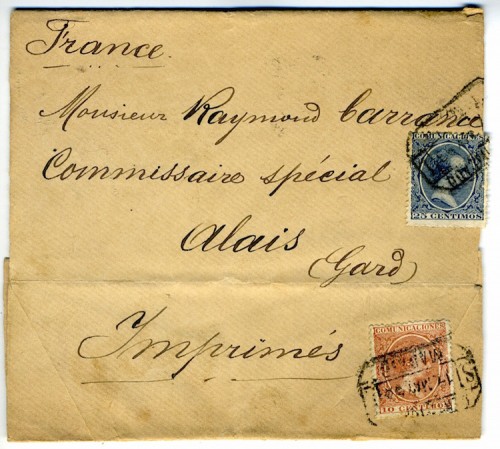 France
Monsieur Raymond Carrance
Commissaire spécial
COMUNICACIONES
25 CENTIMOS
Alais
(Gard)
Imprimés
COMUNICACIONES
10 CENTIMOS